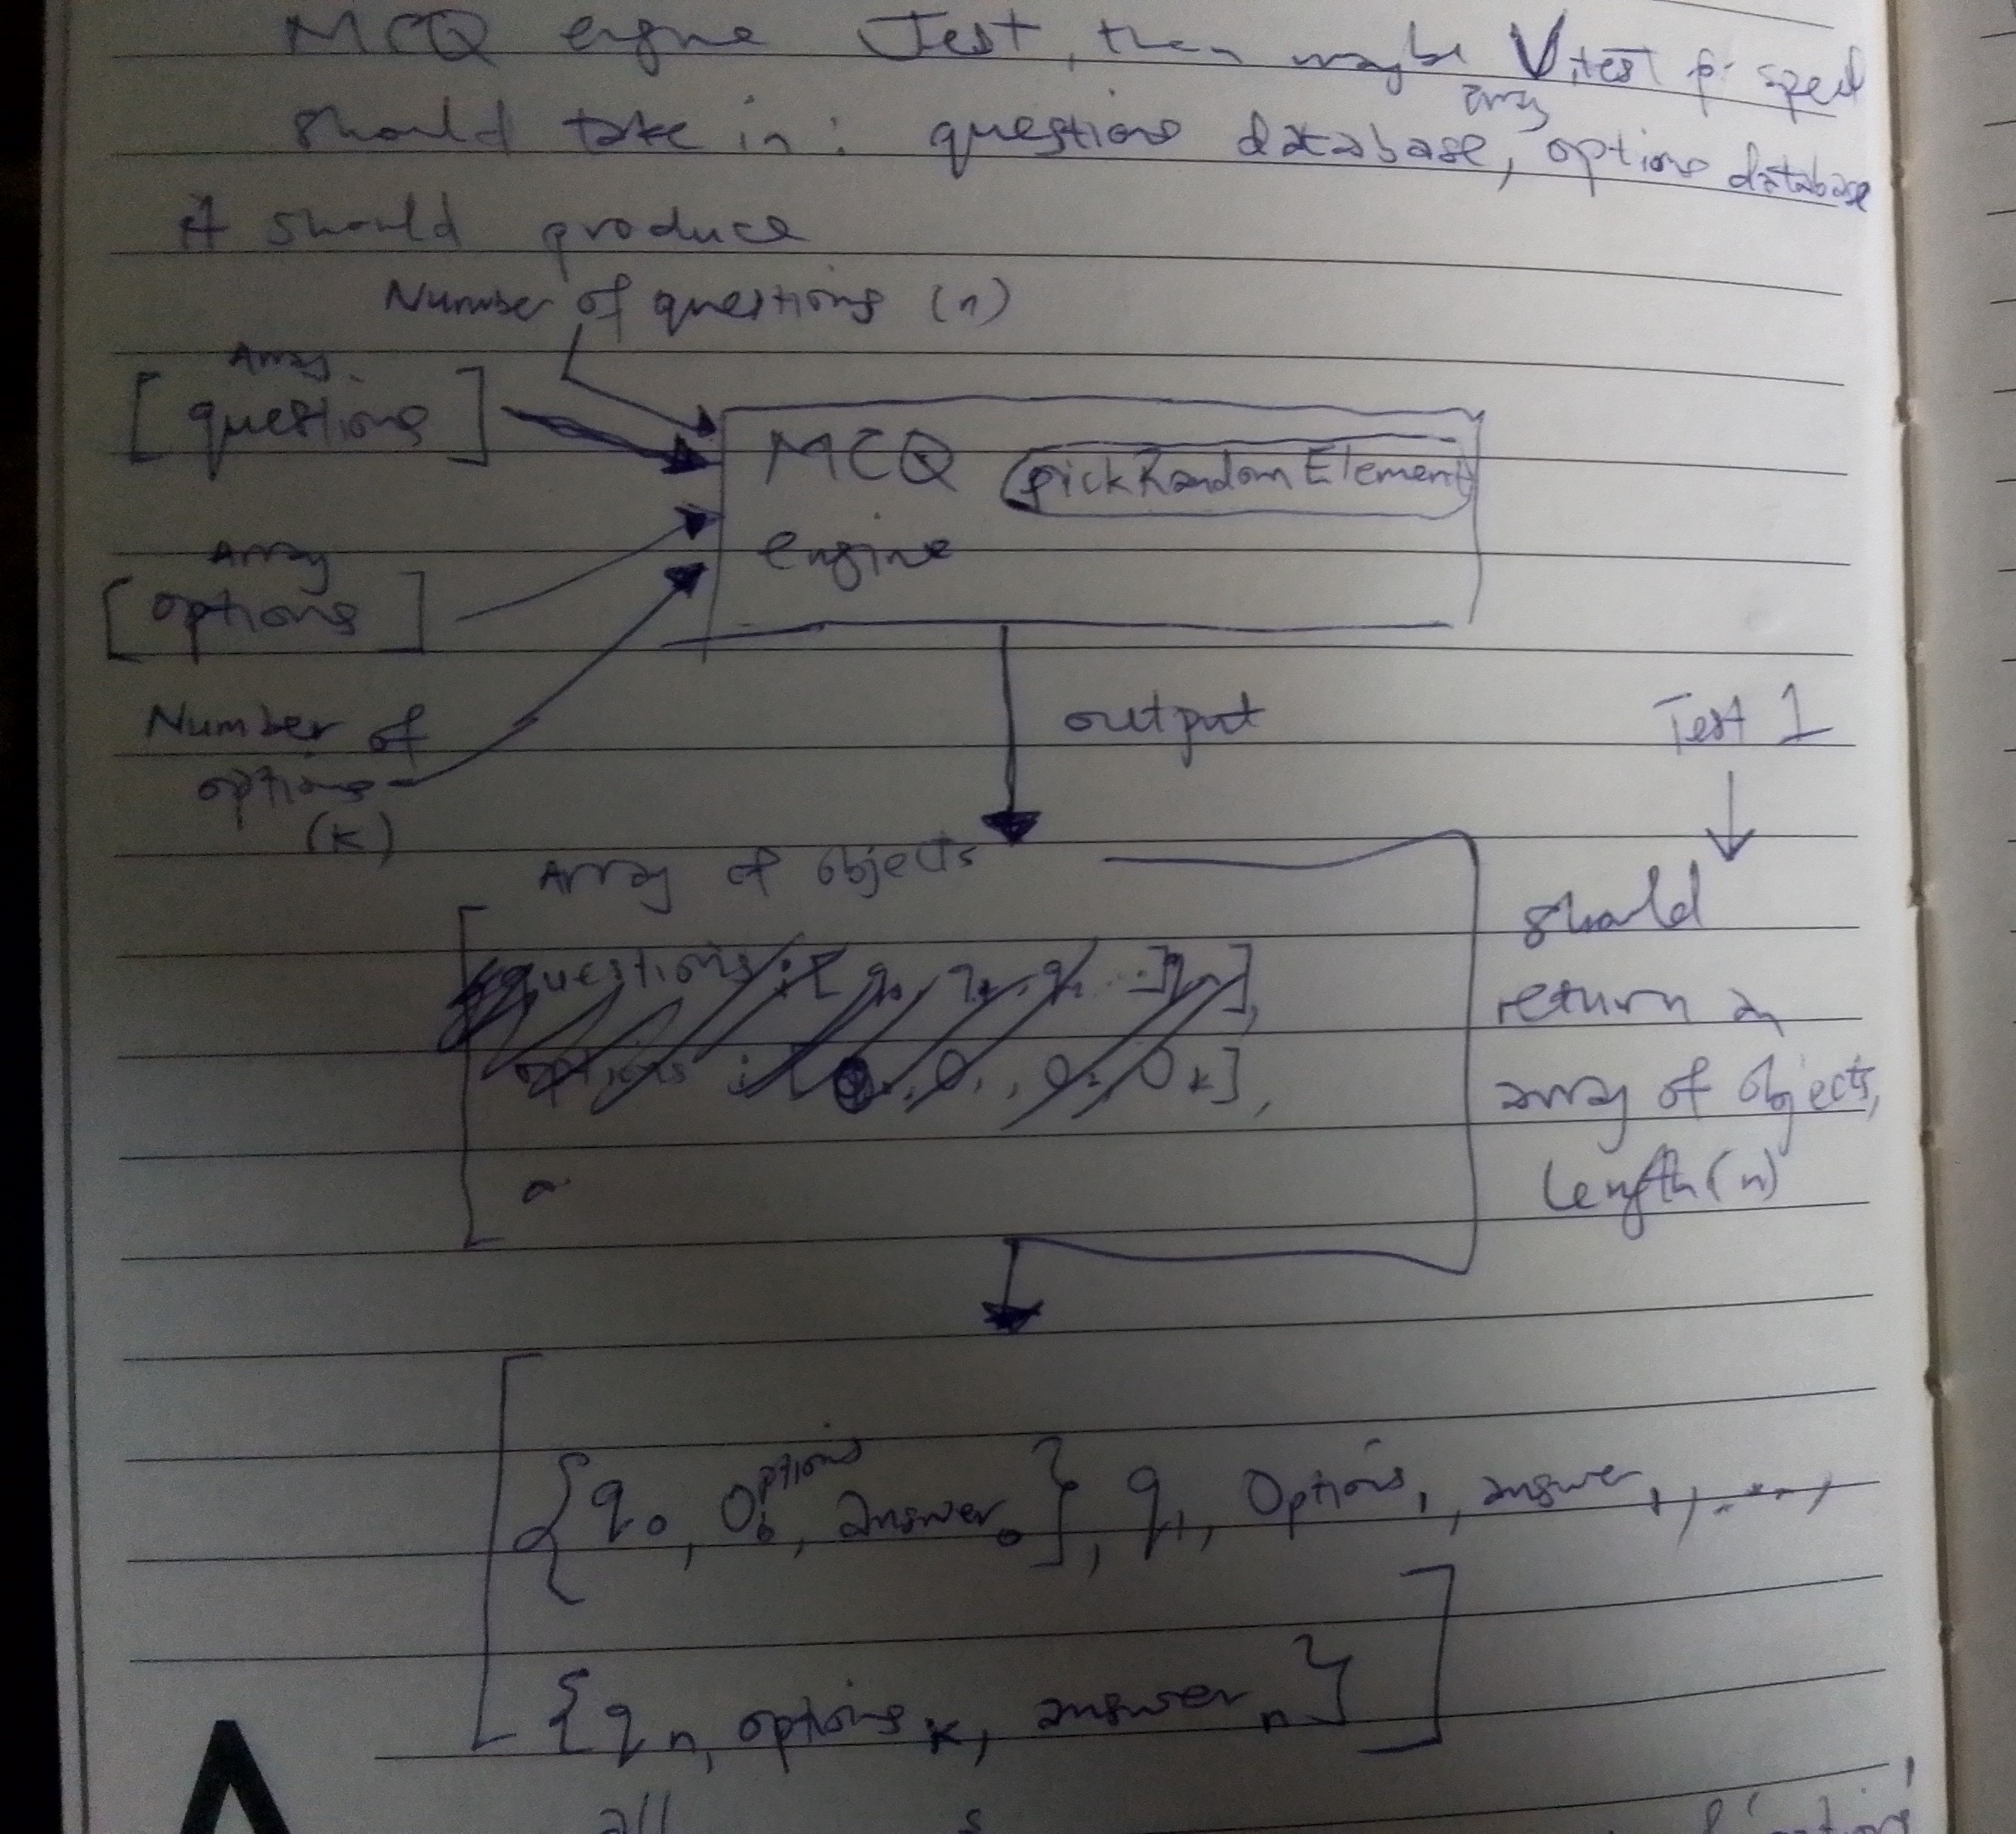 MCQ engine Jest, then maybe Vitest for speed
array
should take in : questions database, options database
It should produce
Number of questions (n)
Array
[questions]
MCQ pickRandomElement
engine
Array
[options]
Number of
options
(k)
output
Test 1
Array of objects
should
return an
array of objects,
length(n)
questions : [q₀, q₁, q₂ ... qₙ],
options : [O₀, O₁, O₂, Oₖ],
[
{q₀, Options₀, answer₀}, q₁, Options₁, answer₁, ...,
{qₙ, optionsₖ, answerₙ}
]
all